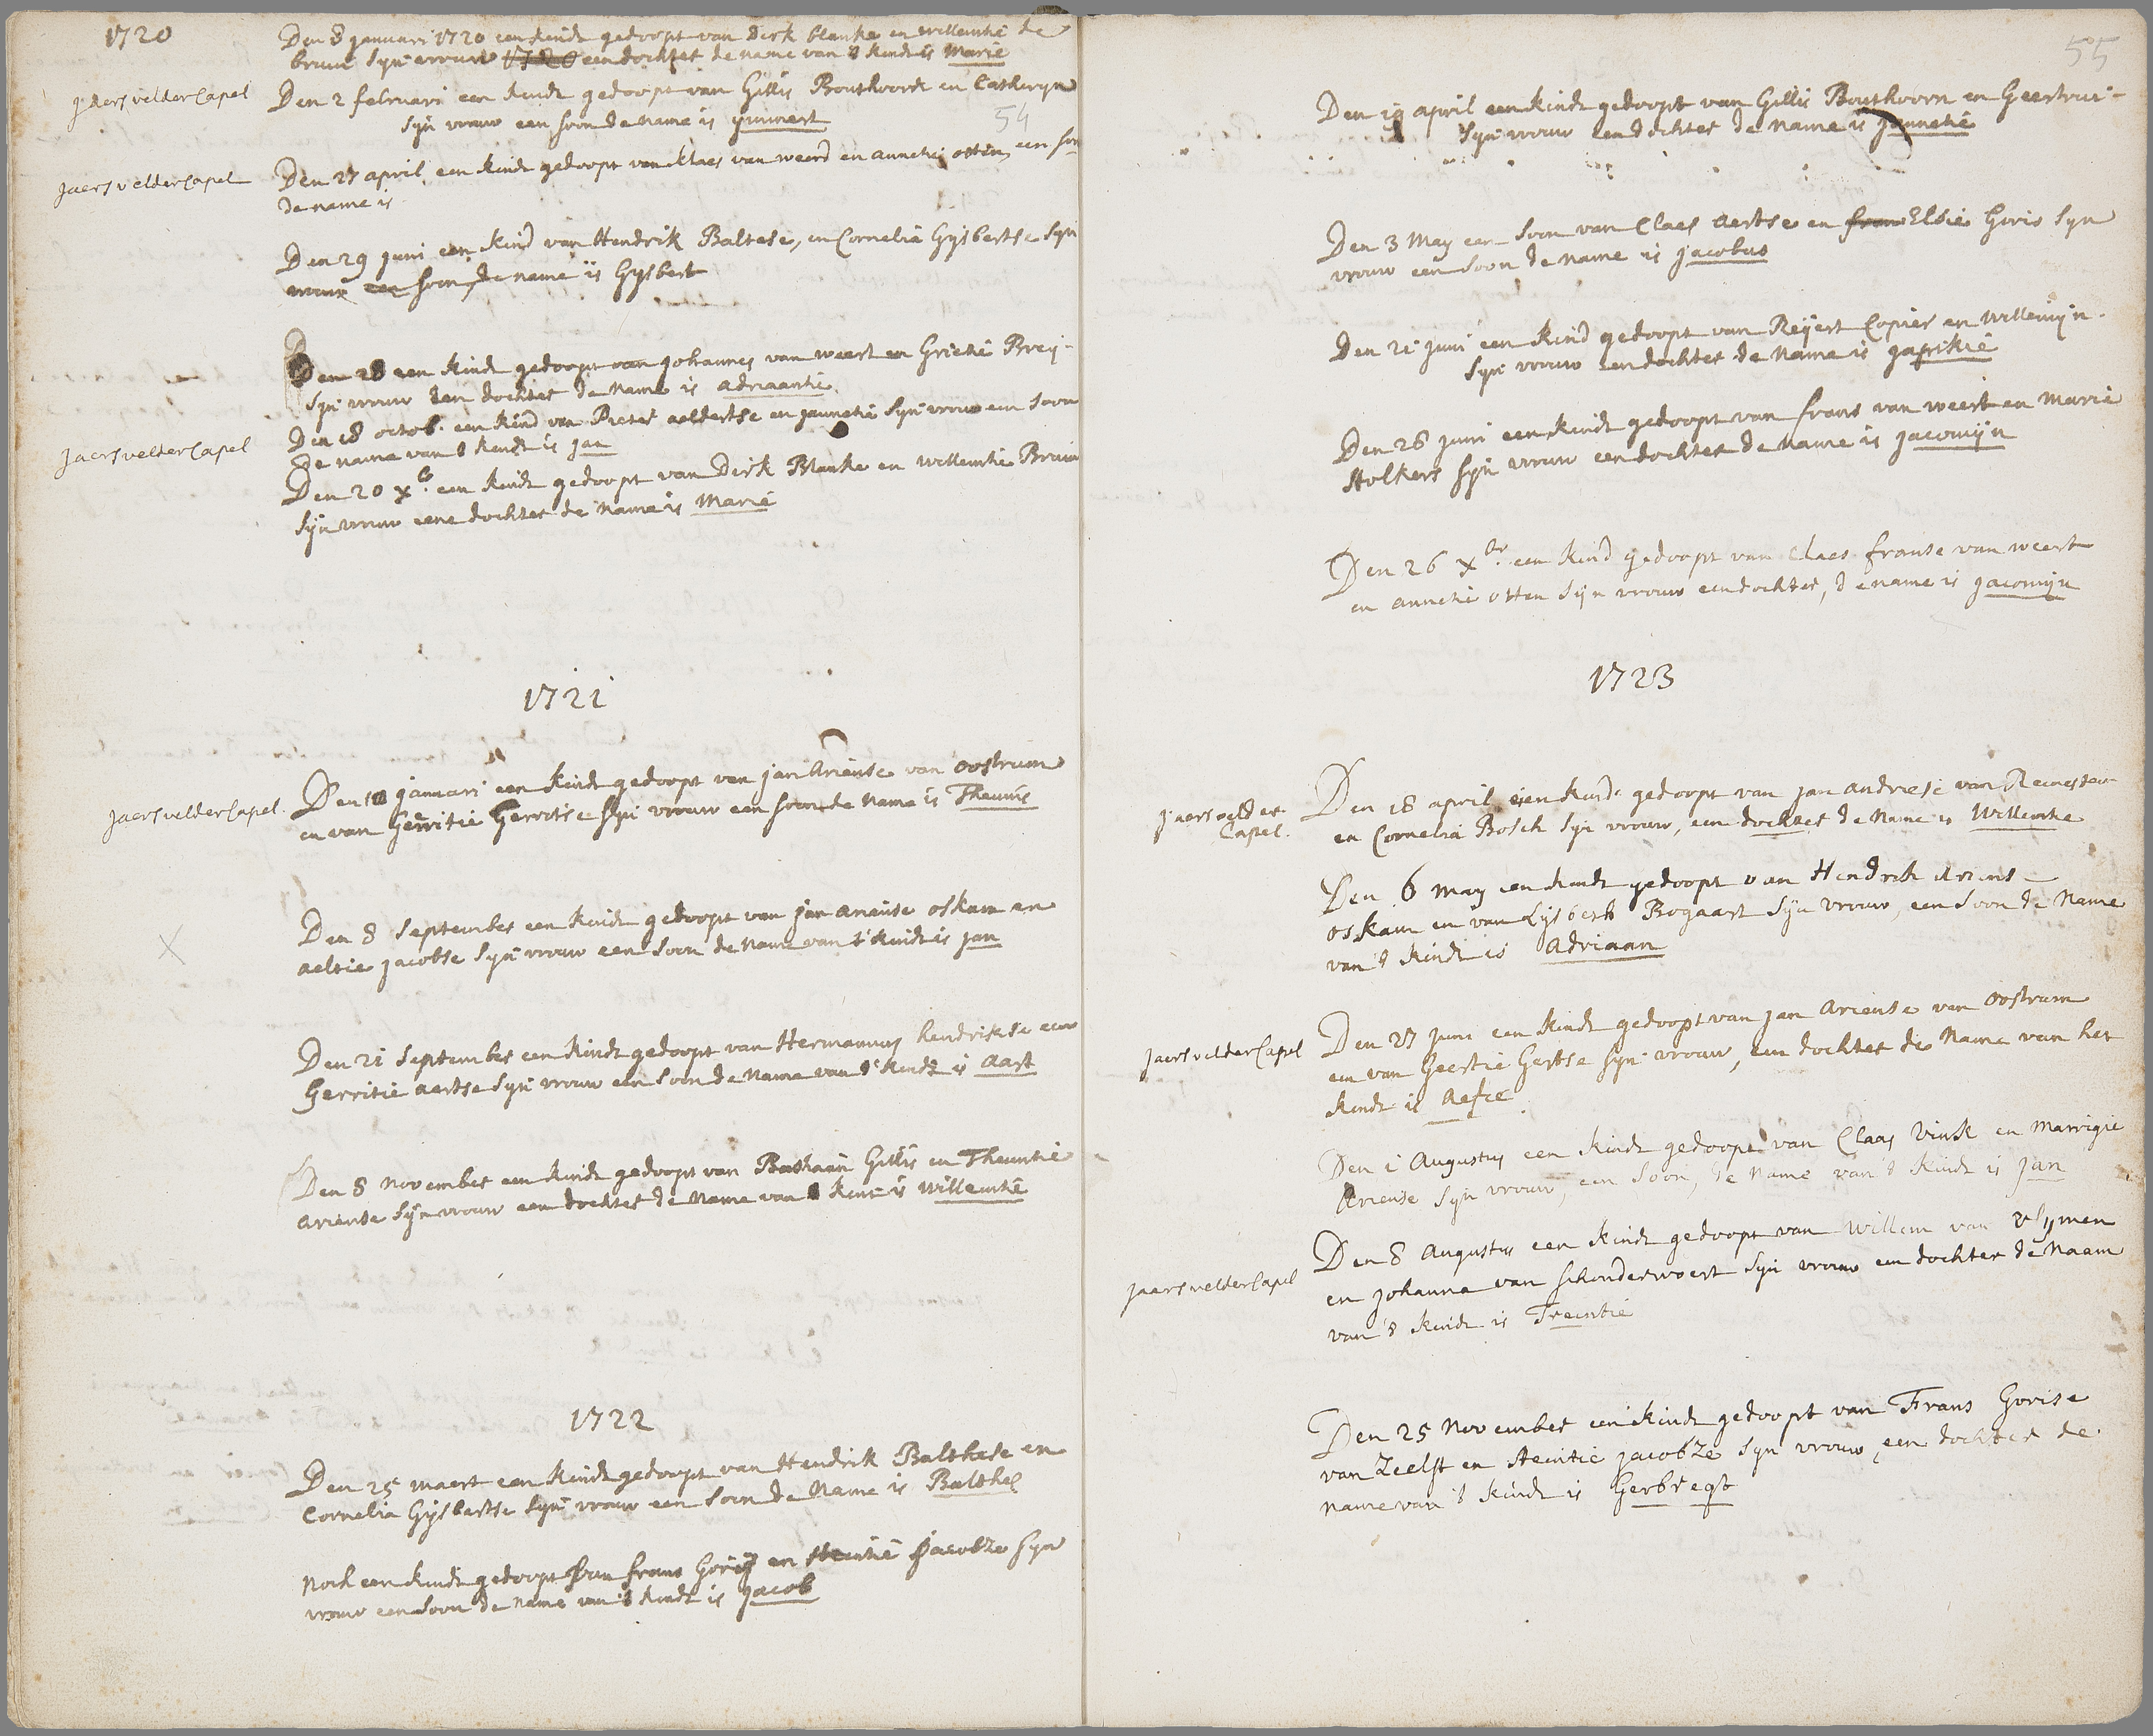 1720
Den 8 januari 1720 een kindt gedoopt van Dirk blanke en willemtie de
bruin syn vrouw 1720 een dochter de name van 't kindt is Marie
Jaersvelder Capel
Den 2 februari een kindt gedoopt van Gillis Bouthoorn en Catheryn
syn vrouw een soon de name is
54
Jaersvelder Capel
Den 27 april een kindt gedoopt van klaes van weerd en annetie otten, een soon
de name is
Den 29 juni een kind van Hendrik Baltese, en Cornelia Gysbertse syn
vrouw een soon, de name is Gysbert
Den 28 een kindt gedoopt van Johannes van weert en Grietie Brey-
syn vrouw een dochter de name is adriaantie
Jaersvelder Capel
Den 18 octob. een kind van Pieter aeldertse en jannetie syn vrouw een soon
de name van 't kindt is jan
Den 20 xb. een kindt gedoopt van Dirk Blanke en willemtie Bruin
syn vrouw eene dochter de name is Marie
1721
Jaersvelder Capel.
Den januari een kindt gedoopt van jan Ariense van oostrum
en van Gerritie Gerritse syn vrouw een soon de name is Theunis
Den 8 September een kindt gedoopt van jan ariense oskam en
aeltie jacobse syn vrouw een soon de name van 't kindt is jan
X
Den 21 September een kindt gedoopt van Hermannus hendrikse en
Gerritie aertse syn vrouw een soon de name van 't kindt is aart
Den 8 November een kindt gedoopt van Bastiaan Gillis en Theuntie
Ariense syn vrouw een dochter de name van kint is willemtie
1722
Den 25 maert een kindt gedoopt van Hendrik Balthese en
Cornelia Gysbertse syn vrouw een soon de Name is Balthes
Noch een kindt gedoopt van frans Goris en Steintie Jacobze syn
vrouw een soon de name van 't kindt is jacob
55
Den 19 april een kindt gedoopt van Gillis Bouthoorn en Geertrui-
syn vrouw een dochter de name is jannetie
Den 3 May een soon van Claes aertse en fran Elsie Goris syn
vrouw een soon de name is jacobus
Den 21 juni een kind gedoopt van Reijert Copier en willemijn.
syn vrouw een dochter de name is
Den 28 juni een kindt gedoopt van frans van weert en Marie
Stolkers syn vrouw een dochter de name is jacomijn
Den 26 xbr. een kind gedoopt van claes franse van weert
en annetie otten syn vrouw een dochter, de name is jacomijn
1723
Jaersvelder
Capel.
Den 18 april een kindt gedoopt van jan andriese van
en Cornelia Bosch syn vrouw, een dochter de Name is Willemtie
Den 6 may een kindt gedoopt van Hendrik Ariens
oskam en van Lijsbeth Bogaart syn vrouw, een soon de Name
van 't kindt is Adriaan
Jaersvelder Capel
Den 27 juni een kindt gedoopt van jan Ariense van oostrum
en van Geertie Gertse syn vrouw, een dochter de Name van het
kindt is Aefie
Den 1 Augustus een kindt gedoopt van Claas Vink en Marrigie
Ariense syn vrouw, een soon, de Name van 't kindt is jan
Jaersvelder Capel
Den 8 Augustus een kindt gedoopt van willem van Vlymen
en johanna van schonderwoert syn vrouw een dochter de Naam
van 't kindt is Treintie
Den 25 November een kindt gedoopt van Frans Gorise
van Zeelst en Steintie jacobze syn vrouw, een dochter de
Name van 't kindt is Gerbregt